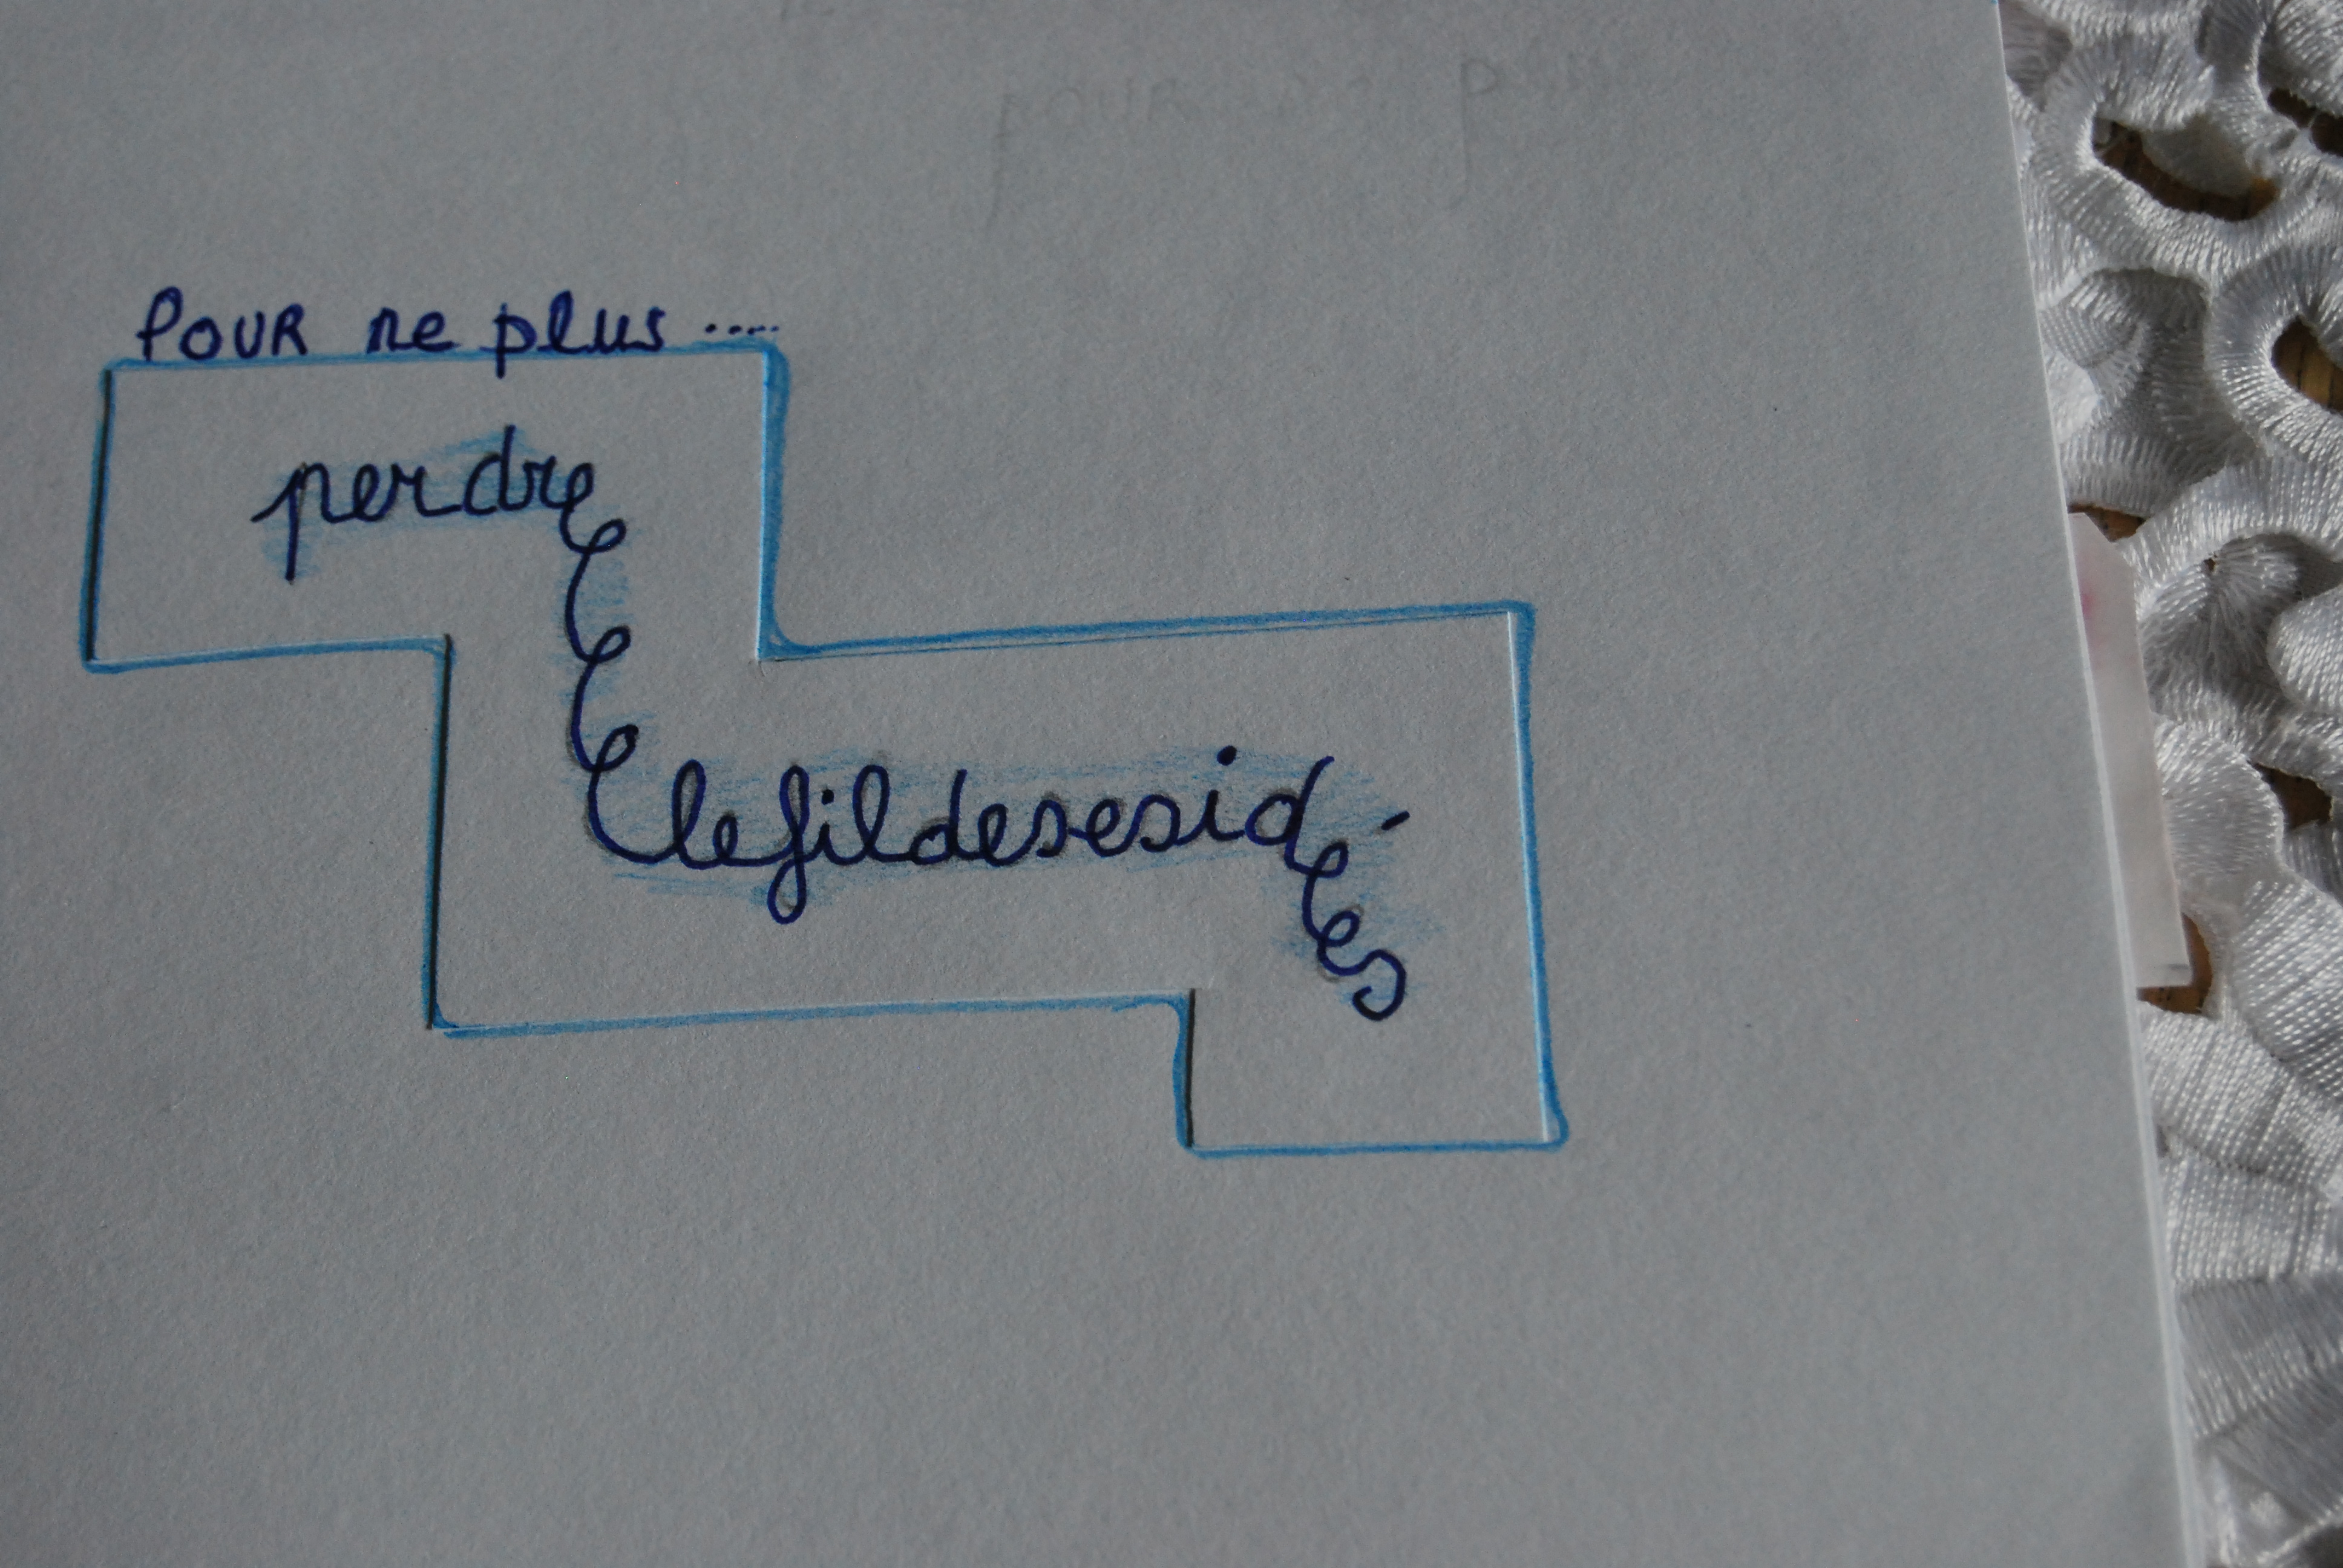 POUR ne plus .....
perdreeee
lefildesesidées